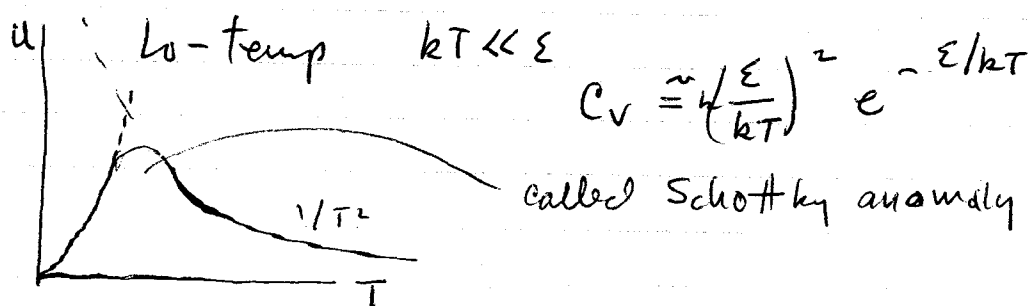 u Lo-temp kT ≪ ε
C_V ≅ k(ε/kT)² e^{-ε/kT}
called Schottky anomaly
1/T²
T